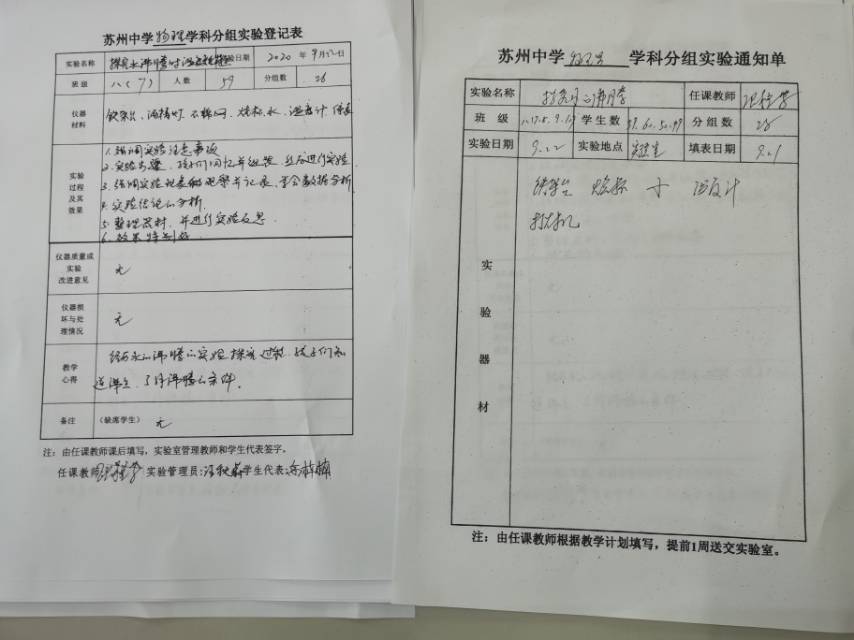 苏州中学物理学科分组实验登记表
实验名称 探究水沸腾时温度 实验日期 2020年9月22日
班级 八(7) 人数 59 分组数 28
仪器材料 铁架台、酒精灯、石棉网、烧杯、水、温度计
实验过程及其效果
1. 强调实验注意事项
2. 实验 孩子们回忆并组装, 然后进行实验
3. 强调实验现象的观察与记录、学会数据分析
4. 实验结论的分析.
5. 整理器材, 并进行实验反思.
6. 效果特别好.
仪器质量或实验改进意见 无
仪器损坏与处理情况 无
教学心得 经历水的沸腾的实验探究过程, 孩子们知
道沸点, 了解沸腾的条件.
备注 (缺席学生) 无
注：由任课教师课后填写，实验室管理教师和学生代表签字。
任课教师 实验管理员: 学生代表:
苏州中学 物理 学科分组实验通知单
实验名称 任课教师
班级 学生数 分组数 28
实验日期 9.22 实验地点 填表日期 9.21
实验器材
铁架台 烧杯 水 温度计
注：由任课教师根据教学计划填写，提前1周送交实验室。